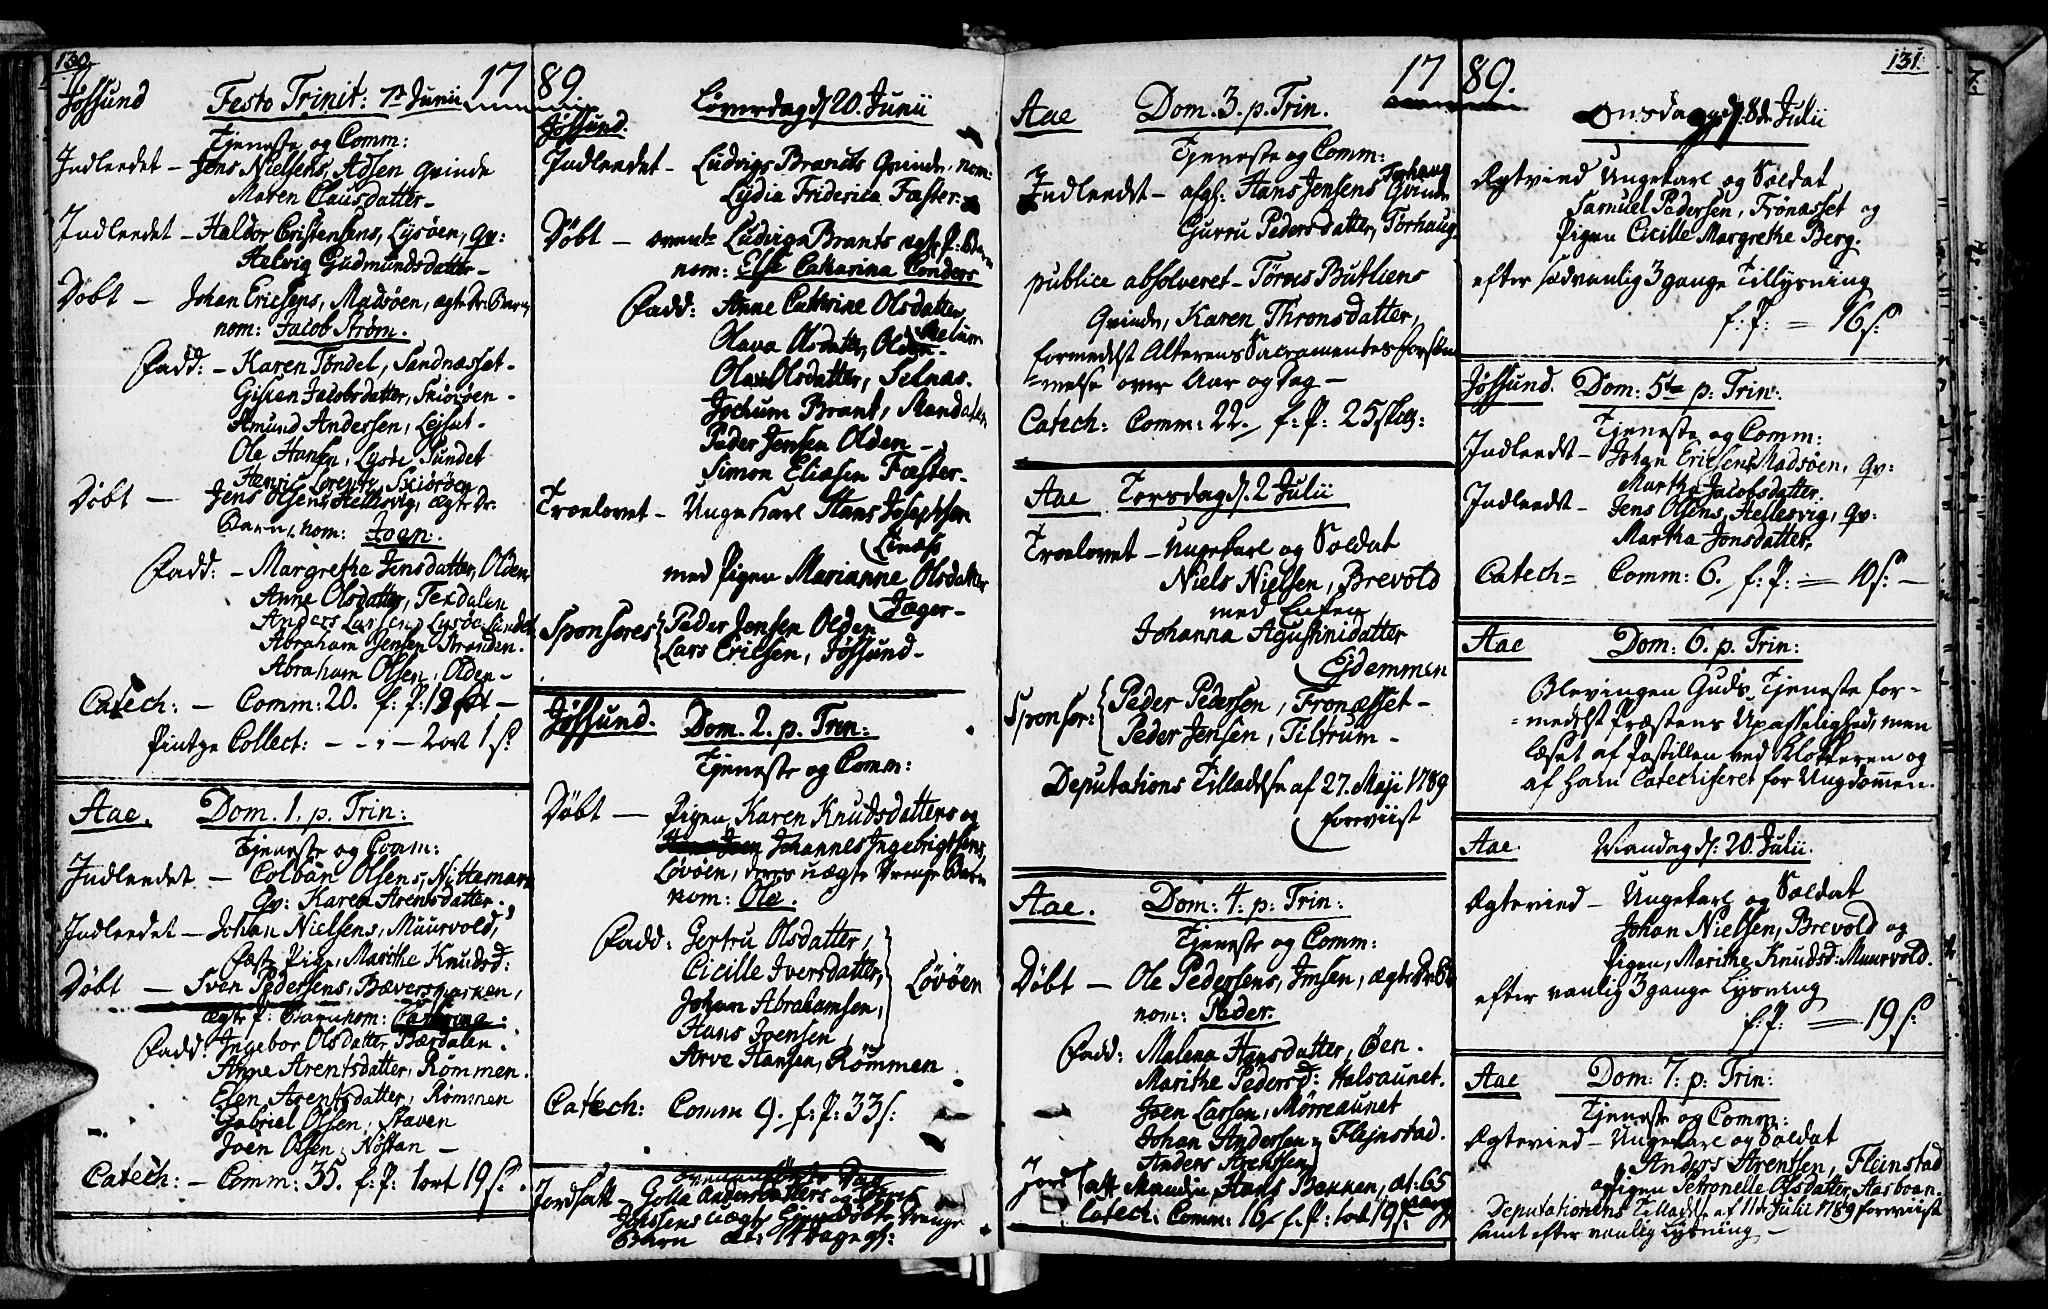 130.
1789.
Jøssund Festo Trinit: 7de Junii
Tjeneste og Comm:
Indleedet - Jens Nielsens, Adsen Qvinde
Maren Clausdatter -
Indleedet - Haldor Cristensens, Lysøen, qv:
Helvig Gudmundsdatter -
Døbt - Johan Ericsens, Madsøen, ægte Dr: Barn,
nom: Jacob Strøm.
Fadd: - Karen Tøndel, Sandnæsset -
Gisken Jacobsdatter, Skiørøen -
Amund Andersen, Lejset -
Ole Hansen, Lysøe Sundet
Henric Lorentz, Skiørøen
Døbt - Jens Olsens, Hellesvig, ægte Dr:
Barn, nom: Joen.
Fadd: - Margrethe Jensdatter, Olden
Anne Olsdatter, Texdalen
Anders Larsen, Lysøesundet
Abraham Jensen Stranden.
Abraham Olsen, Olden -
Catech: - Comm: 20. f: P:
Pintze Collect: - - - 2 ort 1 s:
Aae. Dom. 1. p. Trin:
Tjeneste og Comm:
Indleedet - Colban Olsens, Nittemark
Qv: Karen Arentsdatter.
Indleedet - Johan Nielsens, Muurvold,
Fæste Pige, Marithe Knudsd:
Døbt - Sven Pedersens, Bæversmarken,
ægte P: Barn nom:
Fadd: Ingebor Olsdatter Bærdalen.
Anne Arentsdatter, Rømmen.
Elen Arentsdatter, Rømmen
Gabriel Olsen, Staven
Joen Olsen, Nøstan -
Catech: - Comm: 35. f: P: 1 ort 19 s:.
Løverdag d: 20 Junii
Jøssund.
Indleedet - Ludvigs Brandts Qvinde, nom:
Lydia Friderica Fæster.
Døbt - Ludvig Brants ægte P: Barn
nom: Else Catharina Conders
Fadd: Anne Cathrine Olsdatter,
Olava Olsdatter, Olden
Olava Olsdatter, Selnæs.
Jochum Brant, Mandalen
Peder Jensen Olden -
Simon Eliasen Fæster -
Troelovet - Unge Karl Hans Josephsen
Linæss
med Pigen Marianne Olsdatter
Jæger -
Sponsores { Peder Jensen Olden
Lars Ericsen, Jøssund -
Jøssund. Dom. 2. p. Trin:
Tjeneste og Comm:
Døbt - Pigen Karen Knudsdatters og
Johannes Ingebrigtsens,
Løvøen, deres uægte Drenge Barn
nom: Ole.
Fadd: Gertru Olsdatter,
Cicille Iversdatter,
Johan Abrahamsen,
Hans Joensen
} Løvøen
Arve Hansen, Rømmen
Catech: Comm 9. f: P: 33 s:
Jordfæstt - Golla Andersdatters og
Johnsens uægte Drenge
Barn æt: 14 dage gl:
131.
1789.
Aae Dom. 3. p. Trin.
Tjeneste og Comm:
Indleedt - afgl: Hans Jensens Torhaug Qvinde
Gurru Pedersdatter, Torhaug -
publice absolveret - Tørres Buthliens
Qvinde, Karen Thronsdatter,
formedelst Alterens Sacramentes Forsøm
=melse over Aar og Dag -
Catech: Comm: 22. f: P: 25 skg:
Aae Torsdag d: 2 Julii
Troelovet - Ungekarl og Soldat
Niels Nielsen, Brevold
med Enken
Johanna Agustinidatter
Ejdemmen
Sponsor: { Peder Pedersen, Fronæsset -
Peder Jensen, Tiltrum -
Deputations Tilladelse af 27. Maji 1789
foreviist
Aae. Dom: 4: p: Trin:
Tjeneste og Comm:
Døbt - Ole Pedersens, Imsen, ægte Dr: B:
nom: Peder.
Fadd: Malena Hansdatter, Øen.
Marithe Pedersd: Halsaunet.
Joen Larsen, Mørreaunet
Johan Andersen } Flejnstad.
Anders Arentsen
Jordfætt Manden Hans Bakken, æt: 65 aar
Catech: Comm: 16 f: P: 1 ort 19 s:
Onsdagen d: 8de Julii
Ægtvied Ungekarl og Soldat
Samuel Pedersen, Frønæsset og
Pigen Cicille Margrethe Berg.
efter sædvanlig 3 gange Tillysning
f: P: = 16 s:
Jøssund. Dom: 5te p: Trin:
Tjeneste og Comm:
Indleedt - Johan Ericsens Madsøen, qv:
Martha Jacobsdatter.
Indleedt - Jens Olsens, Hellesvig, qv:
Martha Jonsdatter,
Catech = Comm: 6. f: P: = 10 s: -
Aae Dom: 6. p. Trin:
Blev ingen Guds Tjeneste for=
=medelst Præstens Upasselighed, men
læset af Postillen ved Klokkeren og
af ham Catechiseret for Ungdommen.
Aae. Mandag d: 20. Julii.
Ægtevied - Ungekarl og Soldat
Johan Nielsen, Brevold og
Pigen, Marithe Knudsd: Muurvold.
efter vanlig 3 gange Lysning
f: P: = 19 s:
Aae Dom: 7: p: Trin:
Tjeneste og Comm:
Ægtevied - Ungekarl og Soldat
Anders Arentsen, Fleinstad
og Pigen Petronelle Olsdatter, Aasboan.
Deputationens Tilladelse af 11te Julii 1789 foreviist
samt efter vanlig Lysning -